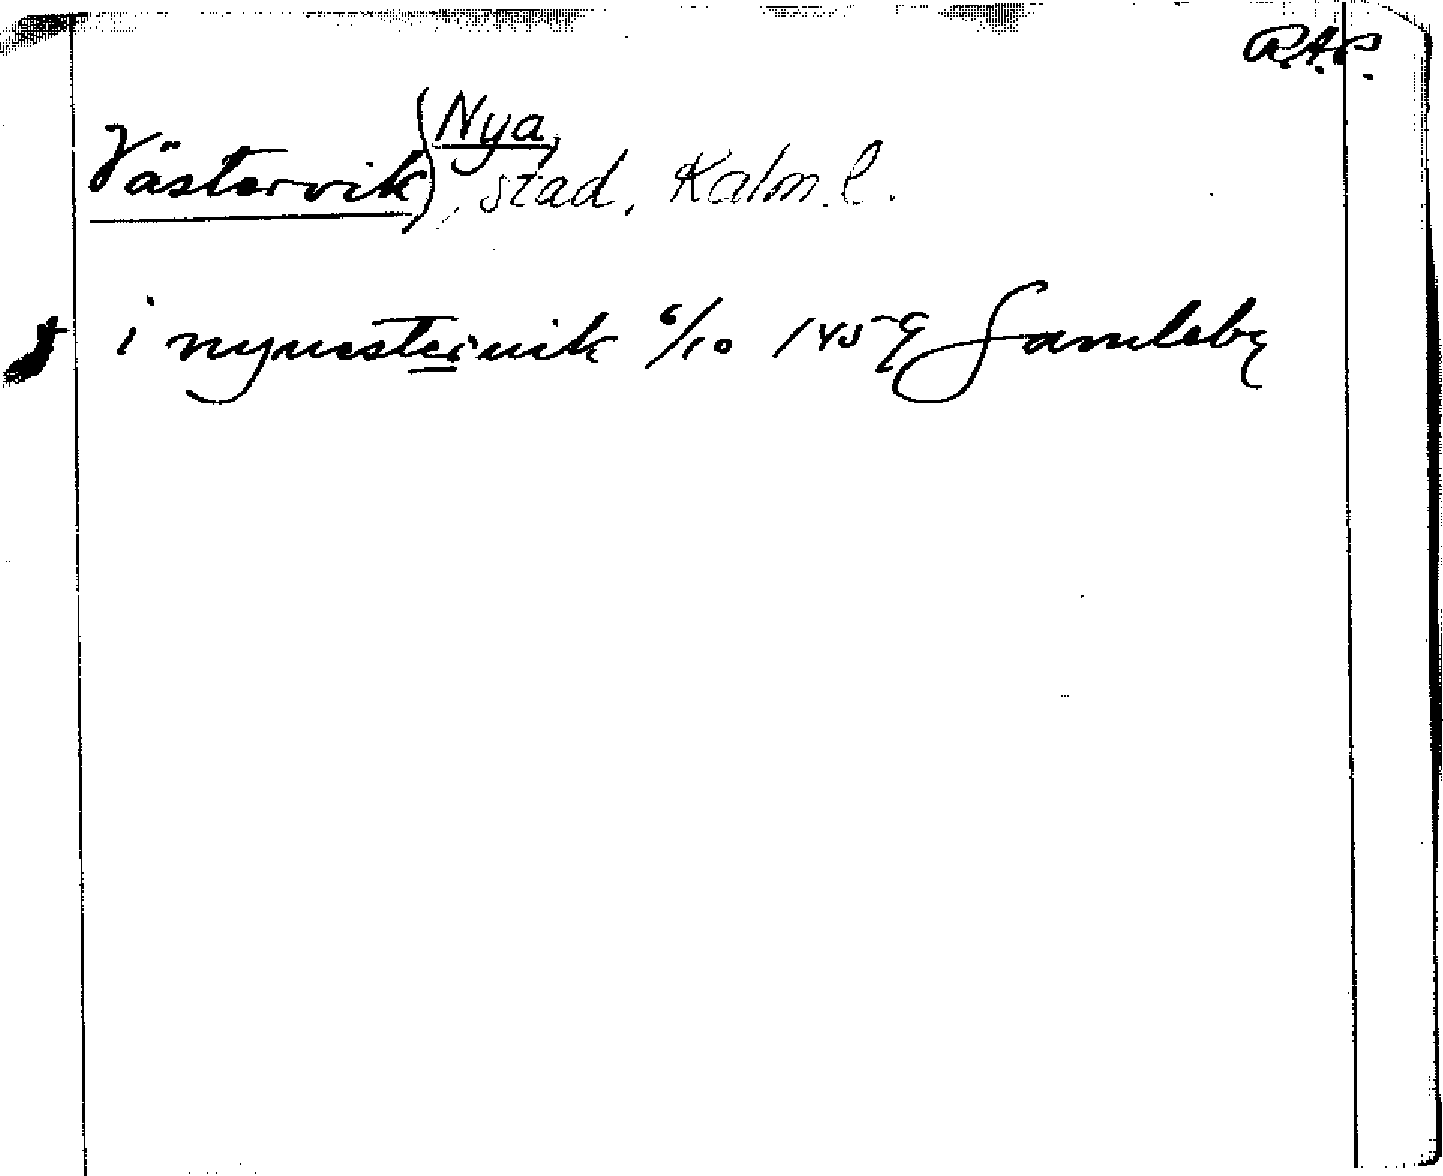 R.A.P.
Västervik) Nya,
stad, Kalm. l.
i nyuesteruik 6/10 1459 Gamleby